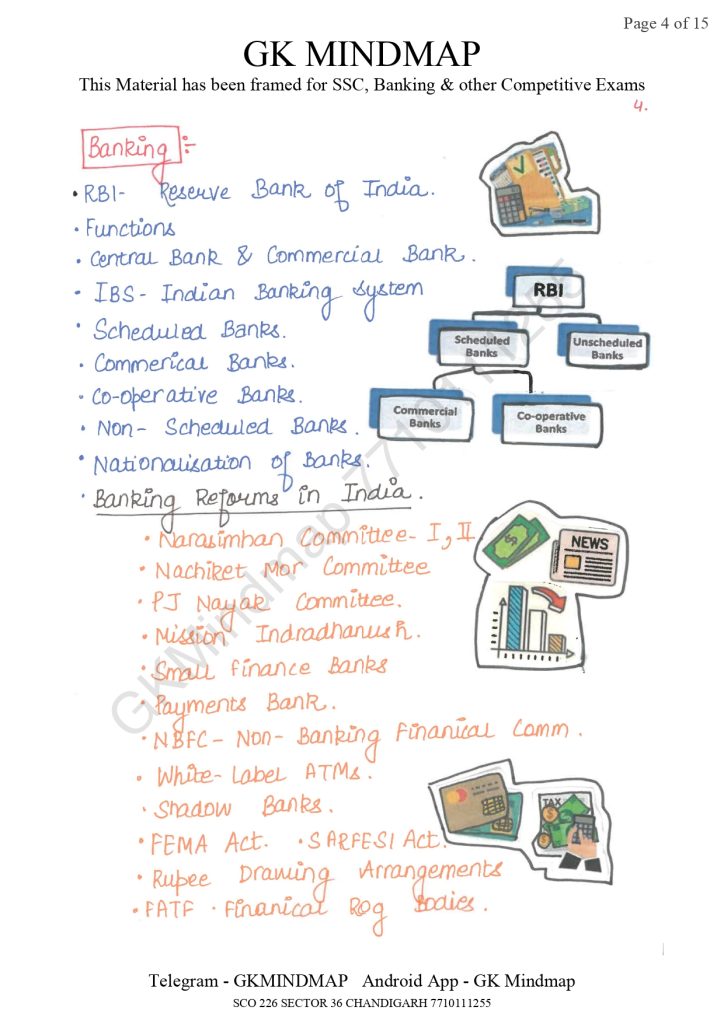 Page 4 of 15
GK MINDMAP
This Material has been framed for SSC, Banking & other Competitive Exams
4.
Banking :-
• RBI- Reserve Bank of India.
• Functions
• Central Bank & Commercial Bank.
• IBS- Indian Banking System
• Scheduled Banks.
• Commerical Banks.
• Co-operative Banks.
• Non- Scheduled Banks.
• Nationalisation of Banks.
RBI
Scheduled
Banks
Unscheduled
Banks
Commercial
Banks
Co-operative
Banks
• Banking Reforms in India.
• Narasimhan Committee- I, II
• Nachiket Mor Committee
• PJ Nayak Committee.
• Mission Indradhanush.
• Small Finance Banks
• Payments Bank.
• NBFC- Non- Banking Finanical Comm.
• White-Label ATMs.
• Shadow Banks.
• FEMA Act. • SARFESI Act.
• Rupee Drawing Arrangements
• FATF • Finanical Rog Bodies.
NEWS
TAX
GKMindmap 7710111255
Telegram - GKMINDMAP Android App - GK Mindmap
SCO 226 SECTOR 36 CHANDIGARH 7710111255